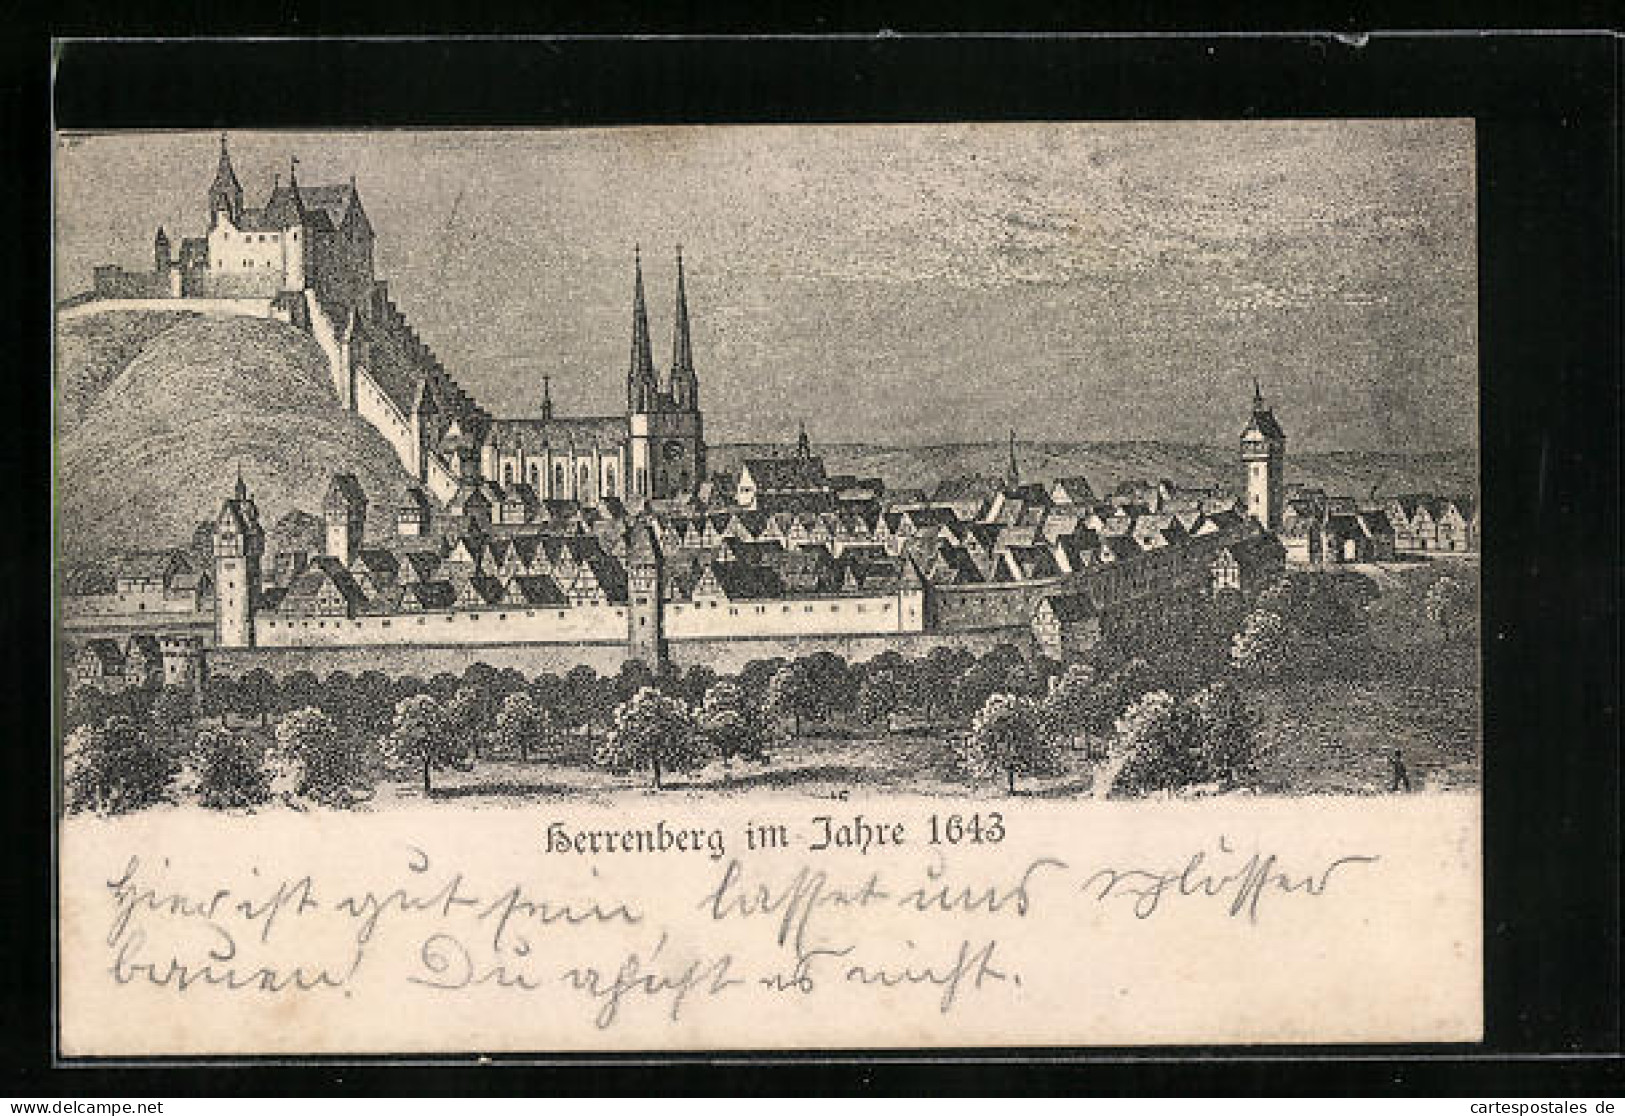 Herrenberg im Jahre 1643
Hier ist gut sein, lasset uns Schlösser
bauen! Du ahnst es nicht.
www.ansichtskartenversand.com
cartespostales de